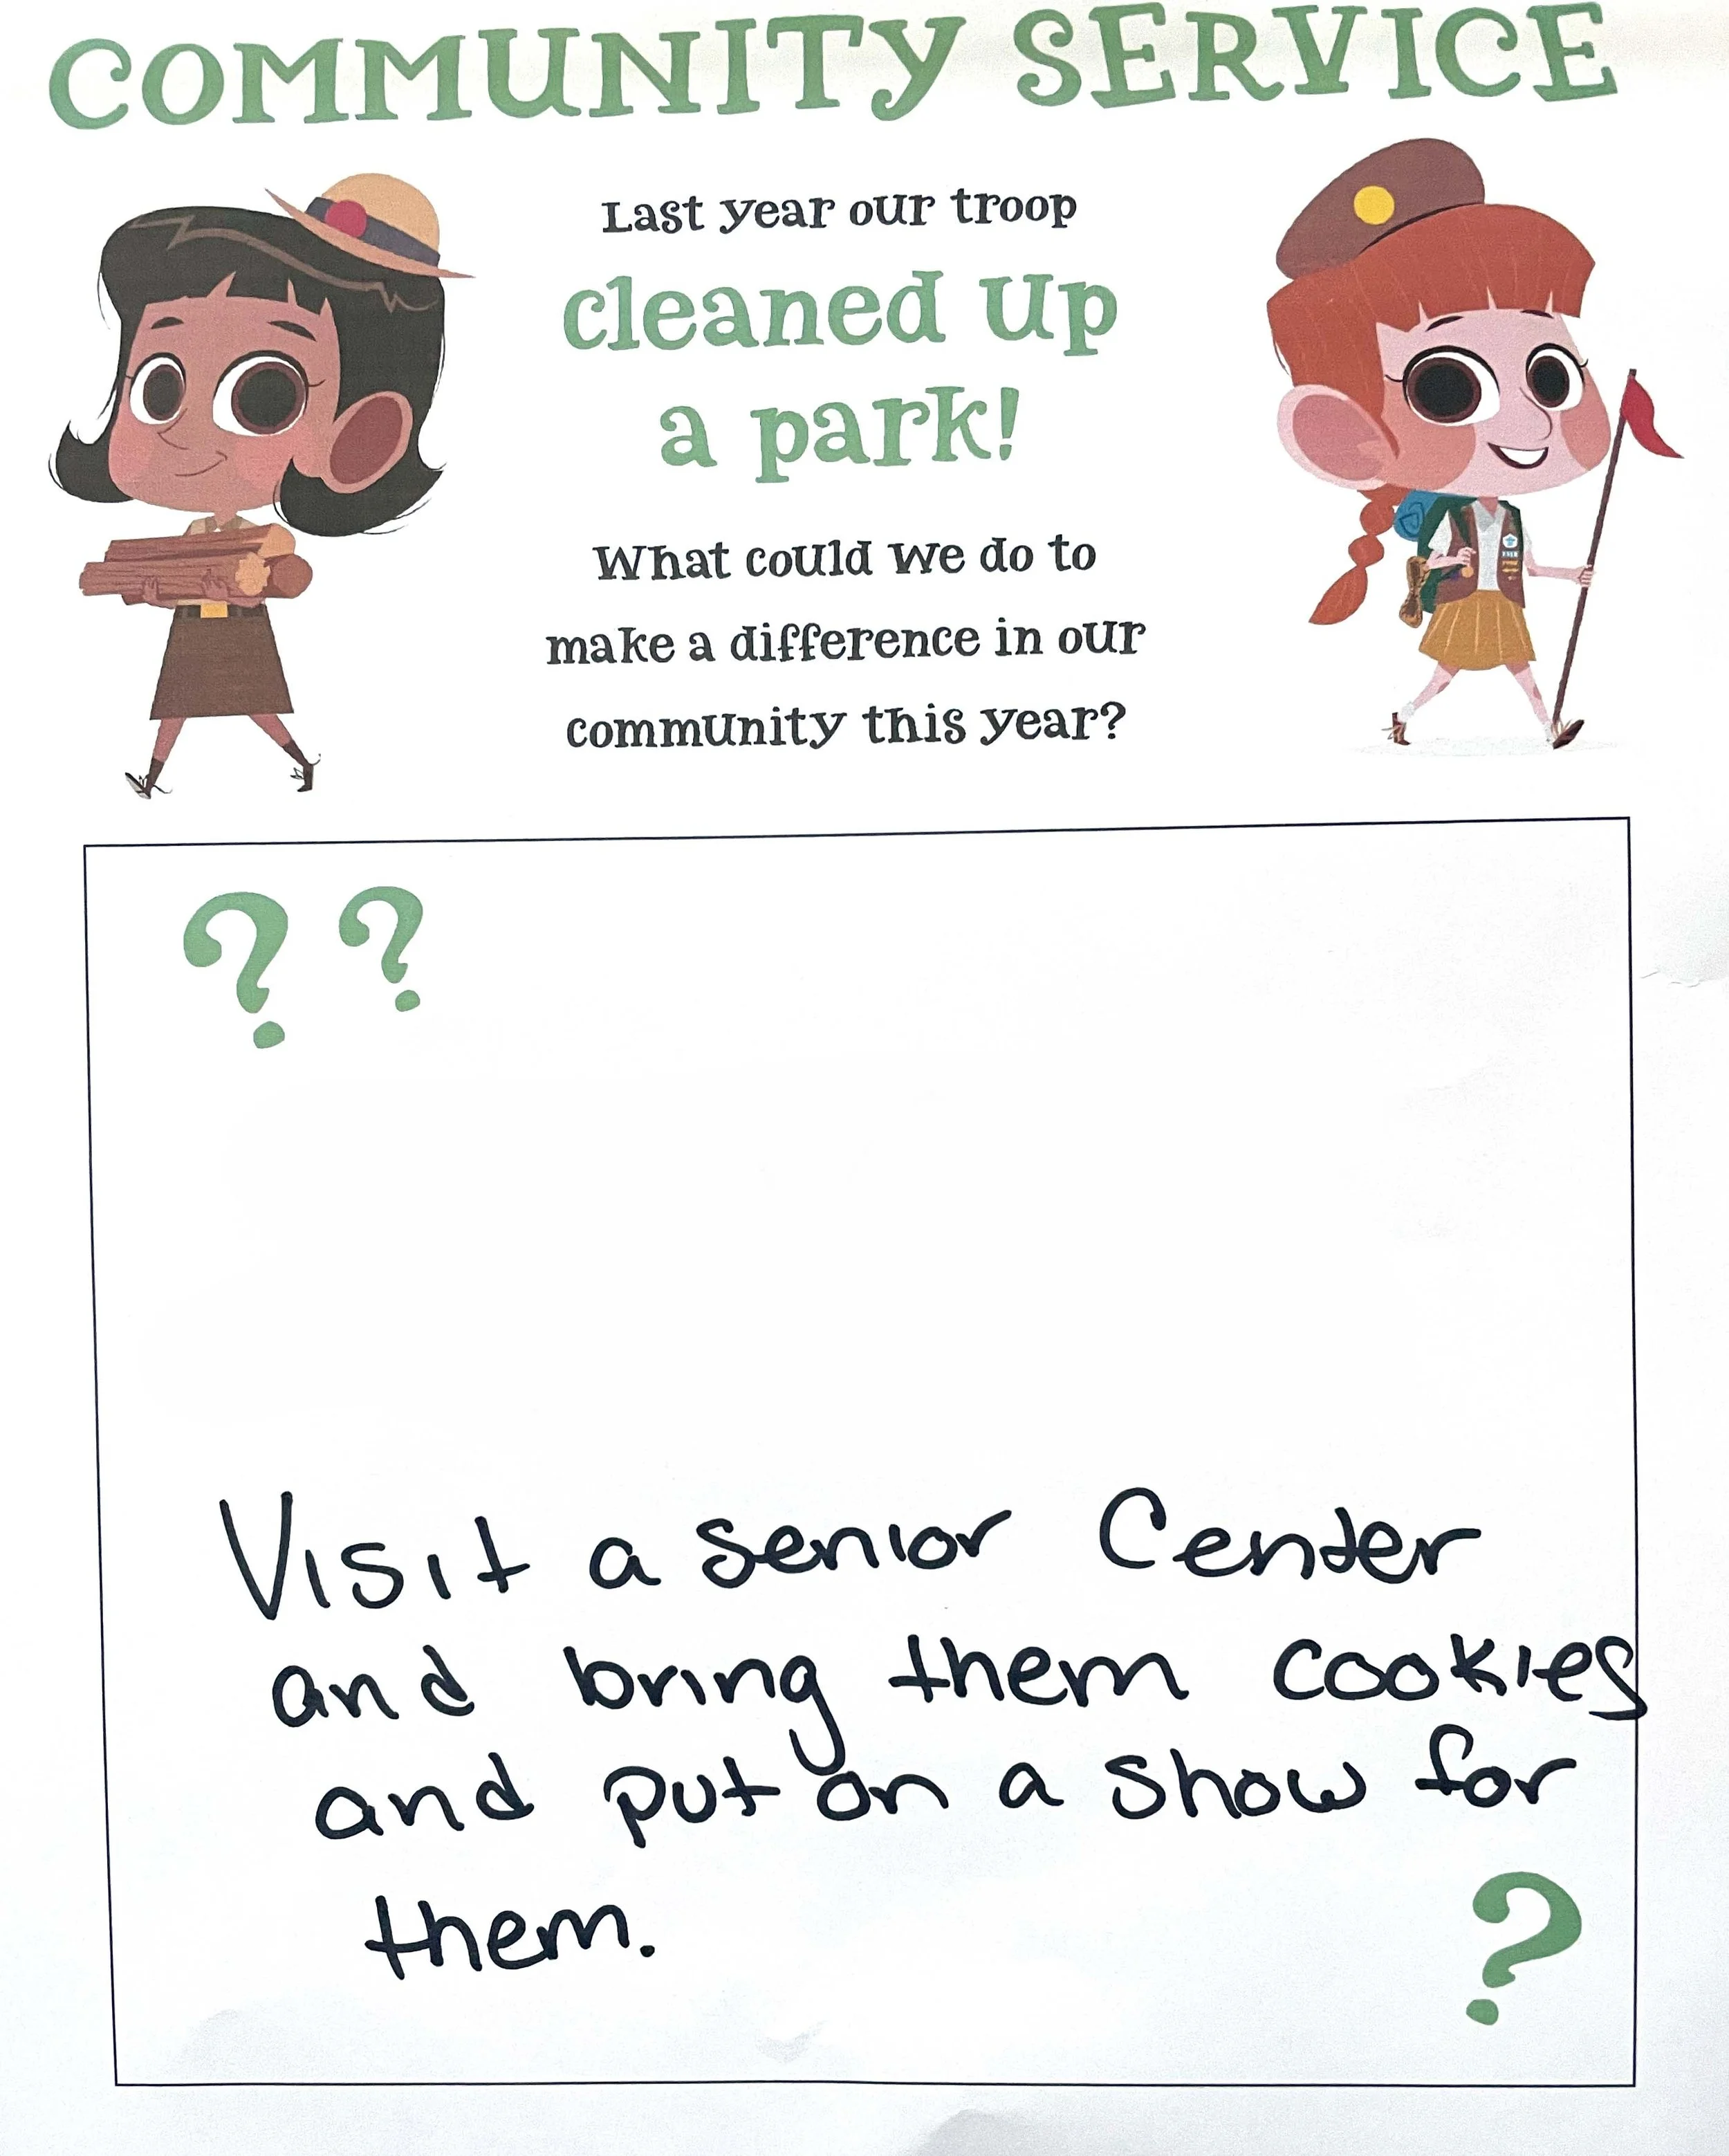 COMMUNITY SERVICE
Last year our troop
cleaned up
a park!
What could we do to
make a difference in our
community this year?
? ?
Visit a senior Center
and bring them cookies
and put on a show for
them.
?